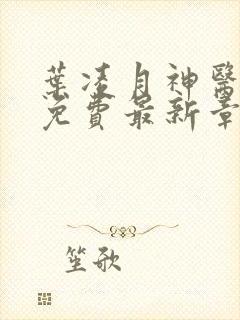 葉凌月神醫
免費最新章
笙歌